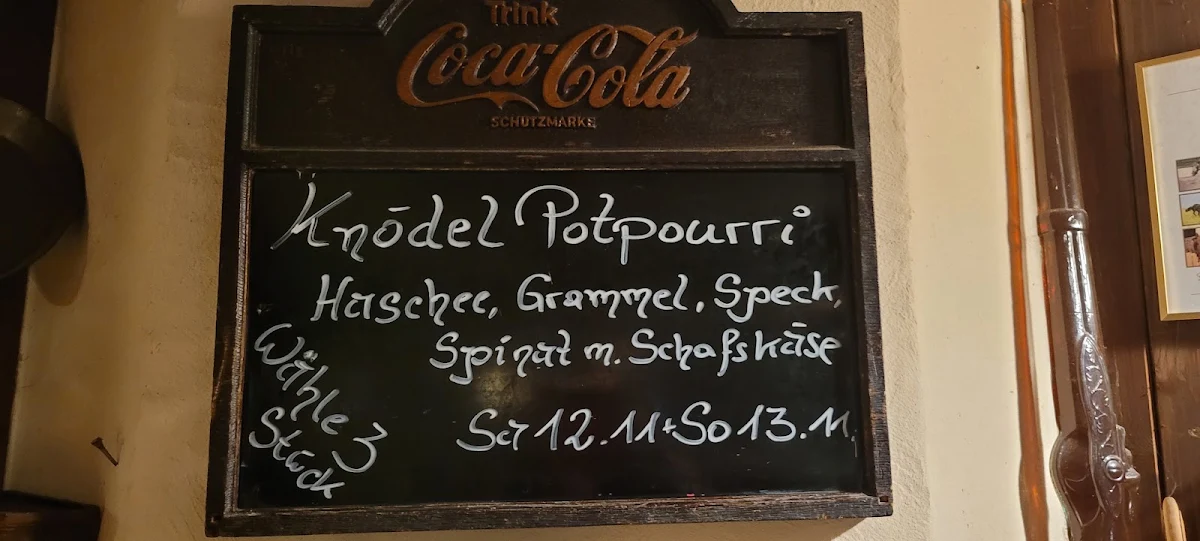 Trink
Coca-Cola
SCHUTZMARKE
Knödel Potpourri
Haschee, Grammel, Speck,
Spinat m. Schafskäse
Wähle 3
Stück
Sa 12.11+So 13.11.